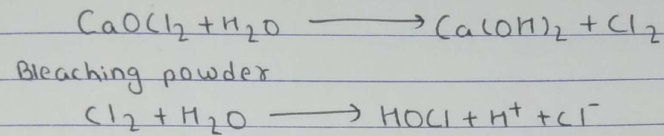 CaOCl₂ + H₂O ⟶ Ca(OH)₂ + Cl₂
Bleaching powder
Cl₂ + H₂O ⟶ HOCl + H⁺ + Cl⁻